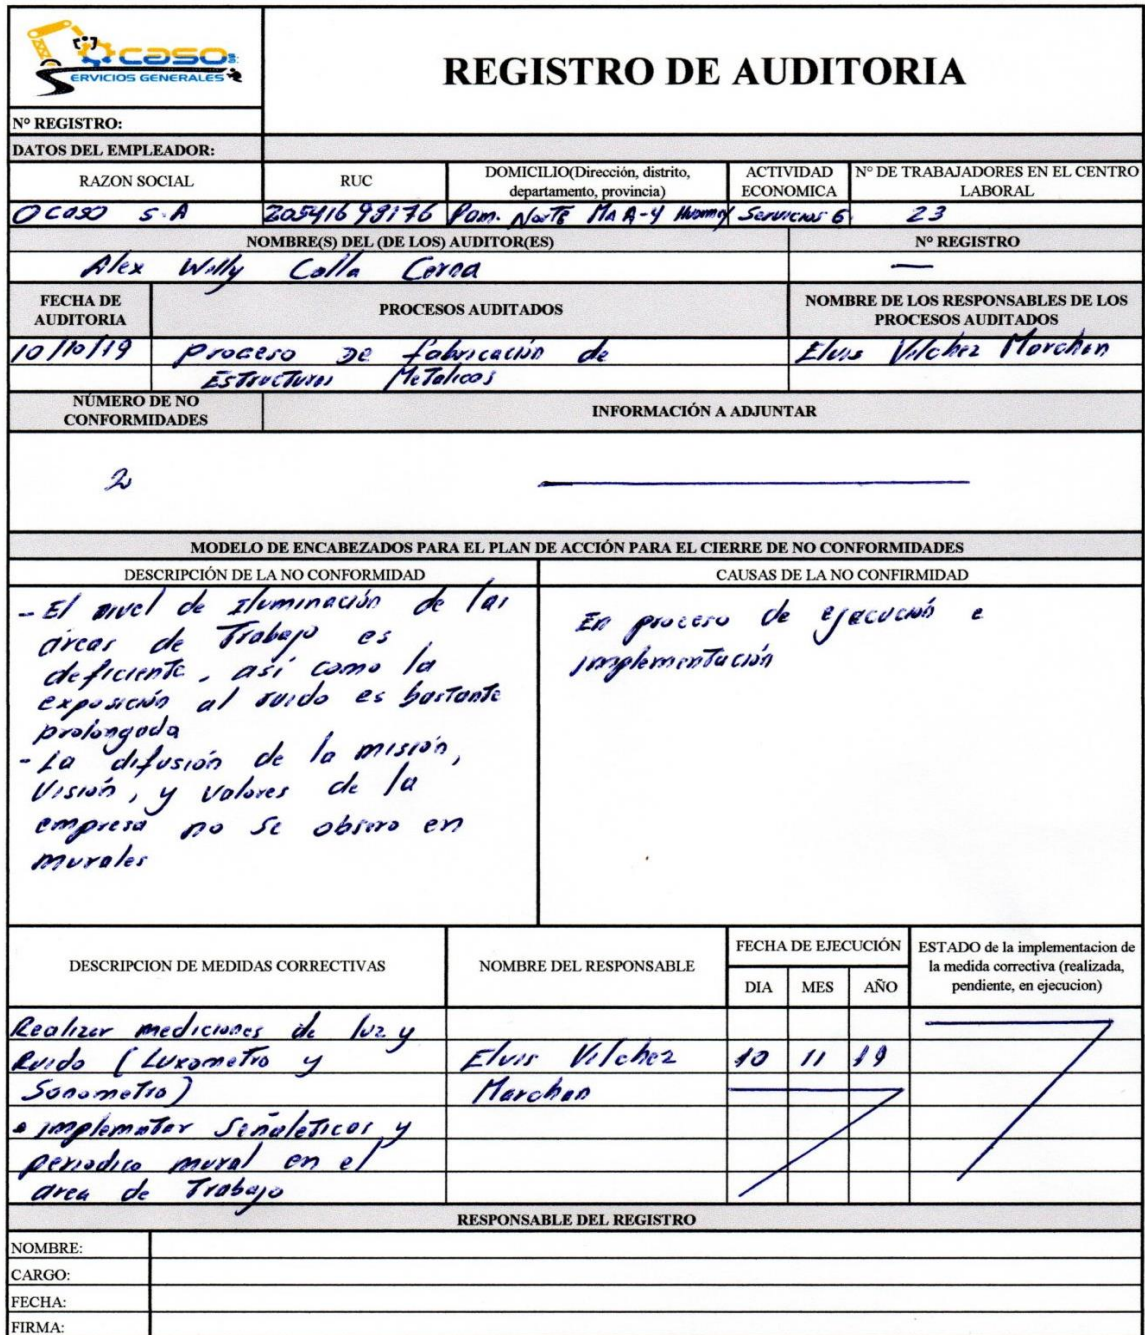 Ocaso
SERVICIOS GENERALES
REGISTRO DE AUDITORIA
Nº REGISTRO:
DATOS DEL EMPLEADOR:
RAZON SOCIAL
RUC
DOMICILIO(Dirección, distrito,
departamento, provincia)
ACTIVIDAD
ECONOMICA
Nº DE TRABAJADORES EN EL CENTRO
LABORAL
Ocaso S.A
Pam. Norte Mz A-4
Servicios G
23
NOMBRE(S) DEL (DE LOS) AUDITOR(ES)
Nº REGISTRO
Alex Willy Calla
—
FECHA DE
AUDITORIA
PROCESOS AUDITADOS
NOMBRE DE LOS RESPONSABLES DE LOS
PROCESOS AUDITADOS
10/10/19
proceso De fabricación de
Elvis Vilchez Marchan
Estructuras Metalicas
NÚMERO DE NO
CONFORMIDADES
INFORMACIÓN A ADJUNTAR
2
MODELO DE ENCABEZADOS PARA EL PLAN DE ACCIÓN PARA EL CIERRE DE NO CONFORMIDADES
DESCRIPCIÓN DE LA NO CONFORMIDAD
CAUSAS DE LA NO CONFIRMIDAD
- El nivel de Iluminación de las
áreas de Trabajo es
deficiente, así como la
exposición al ruido es bastante
prolongada
- La difusión de la misión,
Visión, y valores de la
empresa no se observo en
murales
En proceso de ejecución e
implementación
DESCRIPCION DE MEDIDAS CORRECTIVAS
NOMBRE DEL RESPONSABLE
FECHA DE EJECUCIÓN
DIA
MES
AÑO
ESTADO de la implementacion de
la medida correctiva (realizada,
pendiente, en ejecucion)
Realizar mediciones de luz y
Ruido (Luxometro y
Sonometro)
• implementar Señaleticas y
periodico mural en el
area de Trabajo
Elvis Vilchez
Marchan
10 11 19
RESPONSABLE DEL REGISTRO
NOMBRE:
CARGO:
FECHA:
FIRMA: